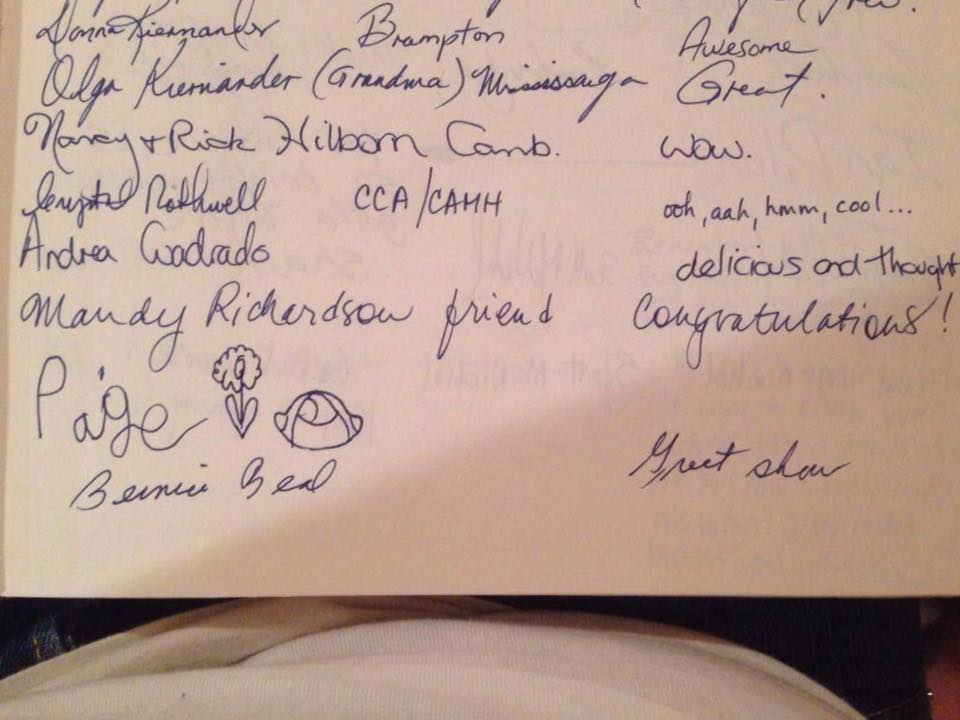 Donna Kiernander Brampton Awesome
Olga Kiernander (Grandma) Mississauga Great.
Nancy + Rick Hilborn Camb. wow.
Crystal Rothwell CCA/CAMH ooh, aah, hmm, cool...
Andrea Cuadrado delicious and thought
Mandy Richardson friend Congratulations!
Paige
Bernice Beal Great show